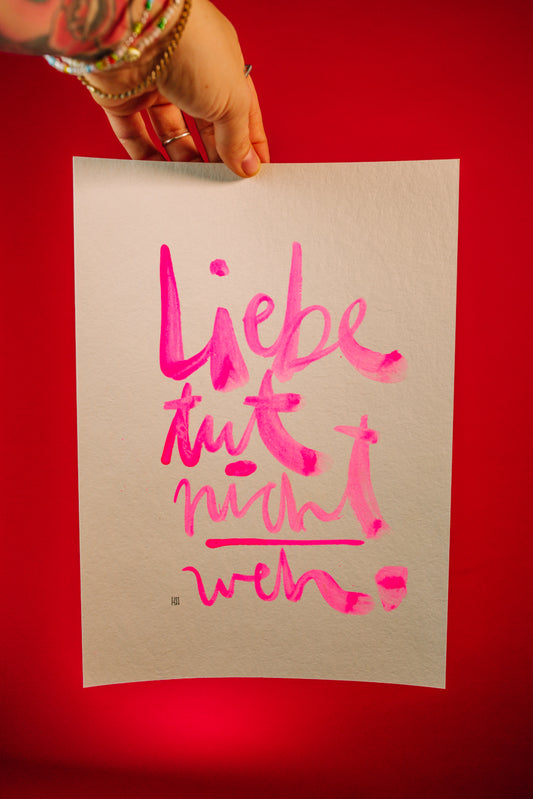 Liebe
tut
nicht
weh.